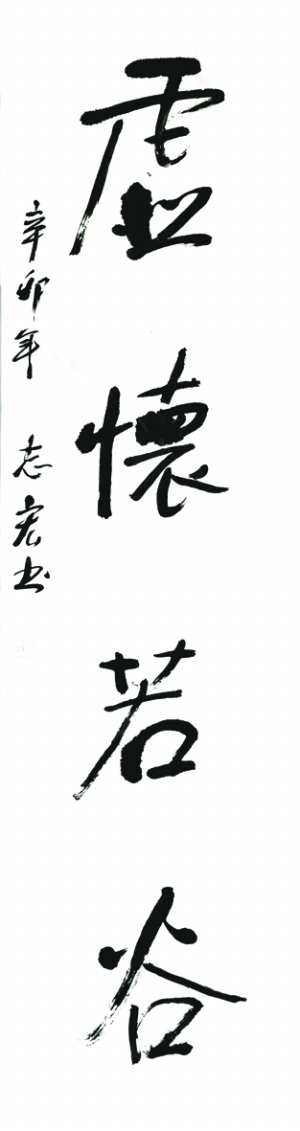 虚懷若谷
辛卯年 志宏书